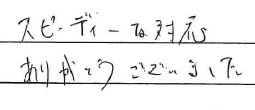 スピーディーな対応
ありがとうございました